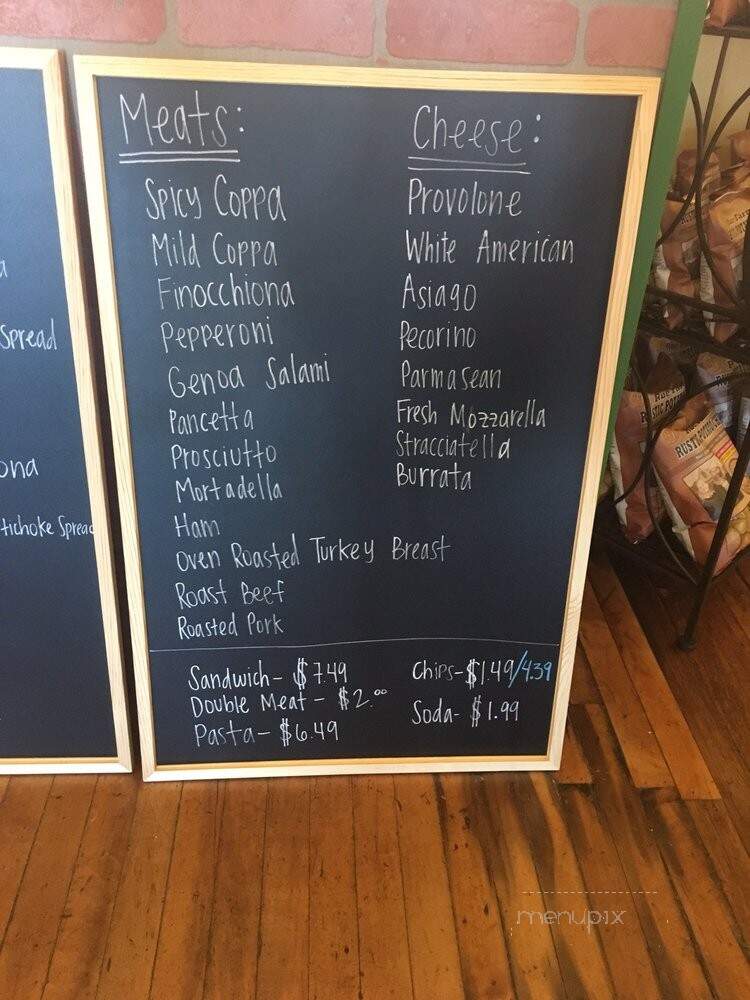 Meats:
Spicy Coppa
Mild Coppa
Finocchiona
Pepperoni
Genoa Salami
Pancetta
Prosciutto
Mortadella
Ham
Oven Roasted Turkey Breast
Roast Beef
Roasted Pork
Cheese:
Provolone
White American
Asiago
Pecorino
Parmasean
Fresh Mozzarella
Stracciatella
Burrata
Sandwich- $7.49
Double Meat - $2.00
Pasta- $6.49
Chips- $1.49/4.39
Soda- $1.99
Spread
ona
tichoke Spread
menupix